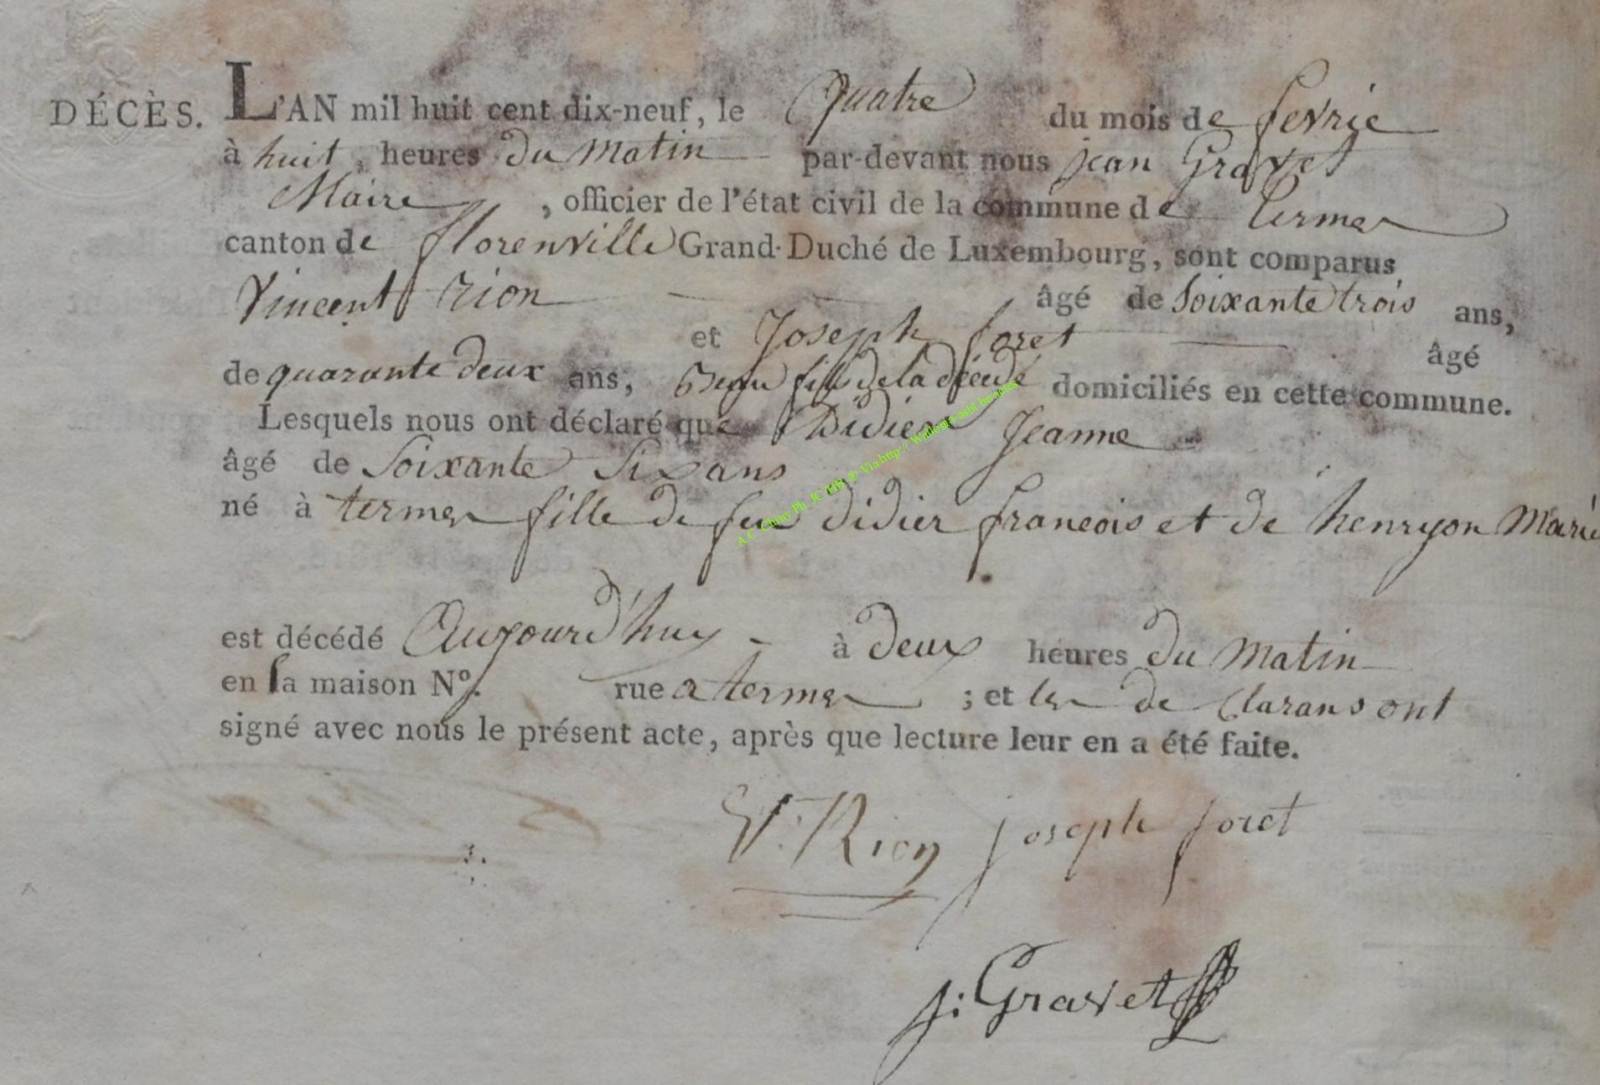 DÉCÈS. L'AN mil huit cent dix-neuf, le quatre du mois de fevrie
à huit, heures du matin par-devant nous jean Gravet
Maire, officier de l'état civil de la commune de termes
canton de florenville Grand-Duché de Luxembourg, sont comparus
Vincent rion âgé de Soixante trois ans,
et Joseph foret âgé
de quarante deux ans, Beau fils de la décédé domiciliés en cette commune.
Lesquels nous ont déclaré que Didier Jeanne
âgé de Soixante Six ans
né à termes fille de feu didier francois et de henryon Marie
est décédé Aujourd'huy à deux heures du matin
en sa maison N°. rue a termes ; et les de Clarans ont
signé avec nous le présent acte, après que lecture leur en a été faite.
V. Rion joseph foret
j: Gravet